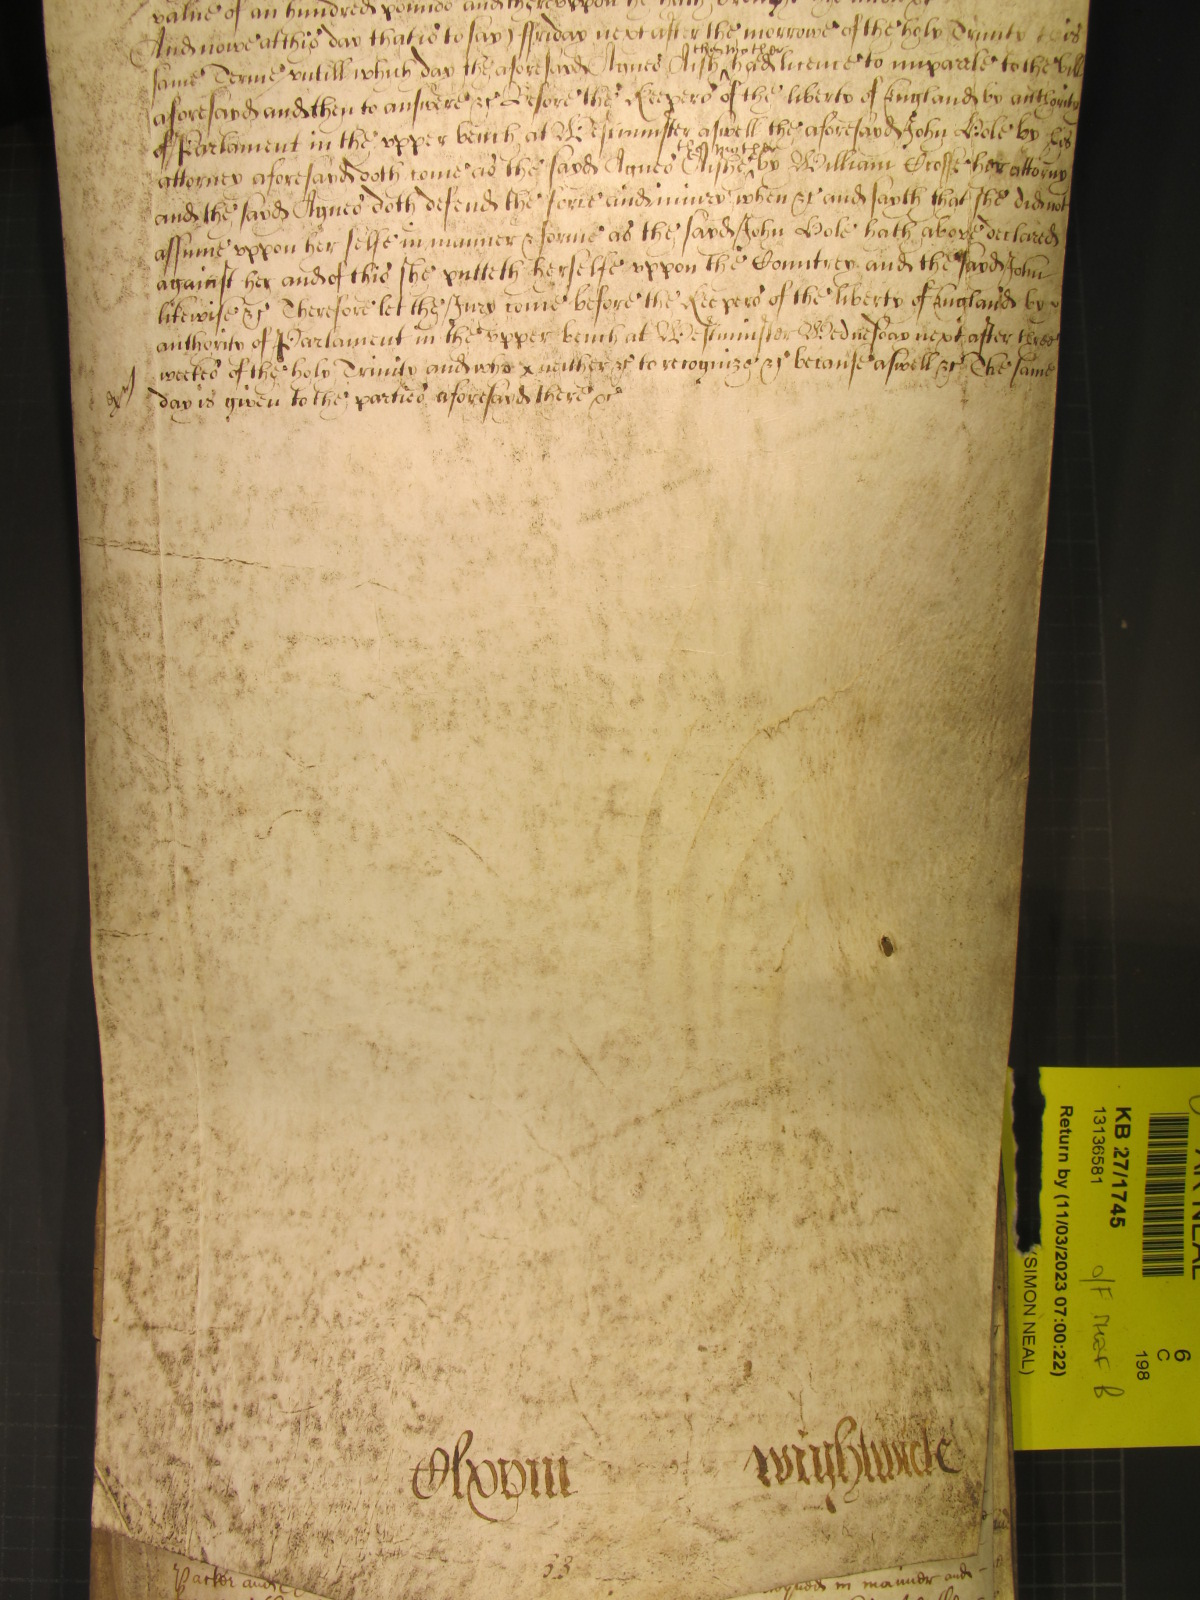 value of an hundred pounds and thereuppon he
And nowe at this day that is to say ffriday next after the morrowe of the holy Trinity this
same Terme untill which day the aforesayd Agnes Aish the mother had licence to imparle to the bill
aforesayd and then to answere &c Before the Keepers of the liberty of England by authority
of Parlament in the upper bench at Westminster aswell the aforesayd John Cole by his
attorney aforesayd doth come as the sayd Agnes Aishe the mother by William Crosse her attorny
and the sayd Agnes doth defend the force and iniury when &c and sayth that she did not
assume uppon her selfe in manner & forme as the sayd John Cole hath above declared
against her and of this she putteth herselfe uppon the Countrey and the sayd John
likewise &c Therefore let the Jury come before the Keepers of the liberty of England by
authority of Parlament in the upper bench at Westminster Wednesday next after three
weekes of the holy Trinity and who neither &c to recognize &c because aswell &c The same
day is given to the parties aforesayd there &c
wightwicke
33
Packer and
in manner and
KB 27/1745
13136581
Return by (11/03/2023 07:00:22)
(SIMON NEAL)
6
C
198